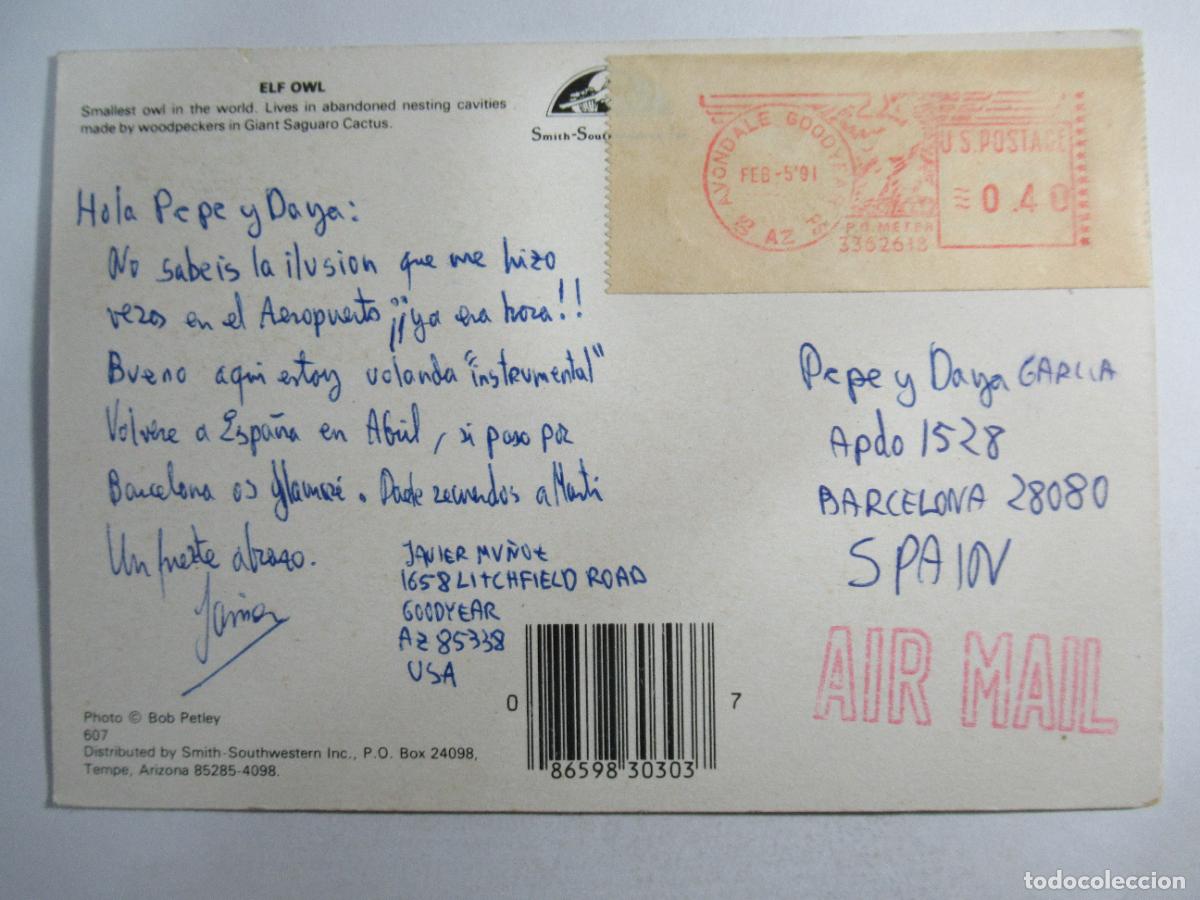 ELF OWL
Smallest owl in the world. Lives in abandoned nesting cavities
made by woodpeckers in Giant Saguaro Cactus.
AVONDALE GOODYEAR
FEB -5'91
AZ
P.O. METER
3352618
U.S. POSTAGE
0.40
Hola Pepe y Daya:
No sabeis la ilusion que me hizo
veros en el Aeropuerto ¡¡ya era hora!!
Bueno aqui estoy volando "instrumental"
Volvere a España en Abril, si paso por
Barcelona os llamaré. Dade recuerdos a Marti
Un fuerte abrazo.
Javier
JAVIER MUÑOZ
1658 LITCHFIELD ROAD
GOODYEAR
AZ 85338
USA
Pepe y Daya GARCIA
Apdo 1528
BARCELONA 28080
SPAIN
AIR MAIL
Photo © Bob Petley
607
Distributed by Smith-Southwestern Inc., P.O. Box 24098,
Tempe, Arizona 85285-4098.
0 86598 30303 7
todocoleccion